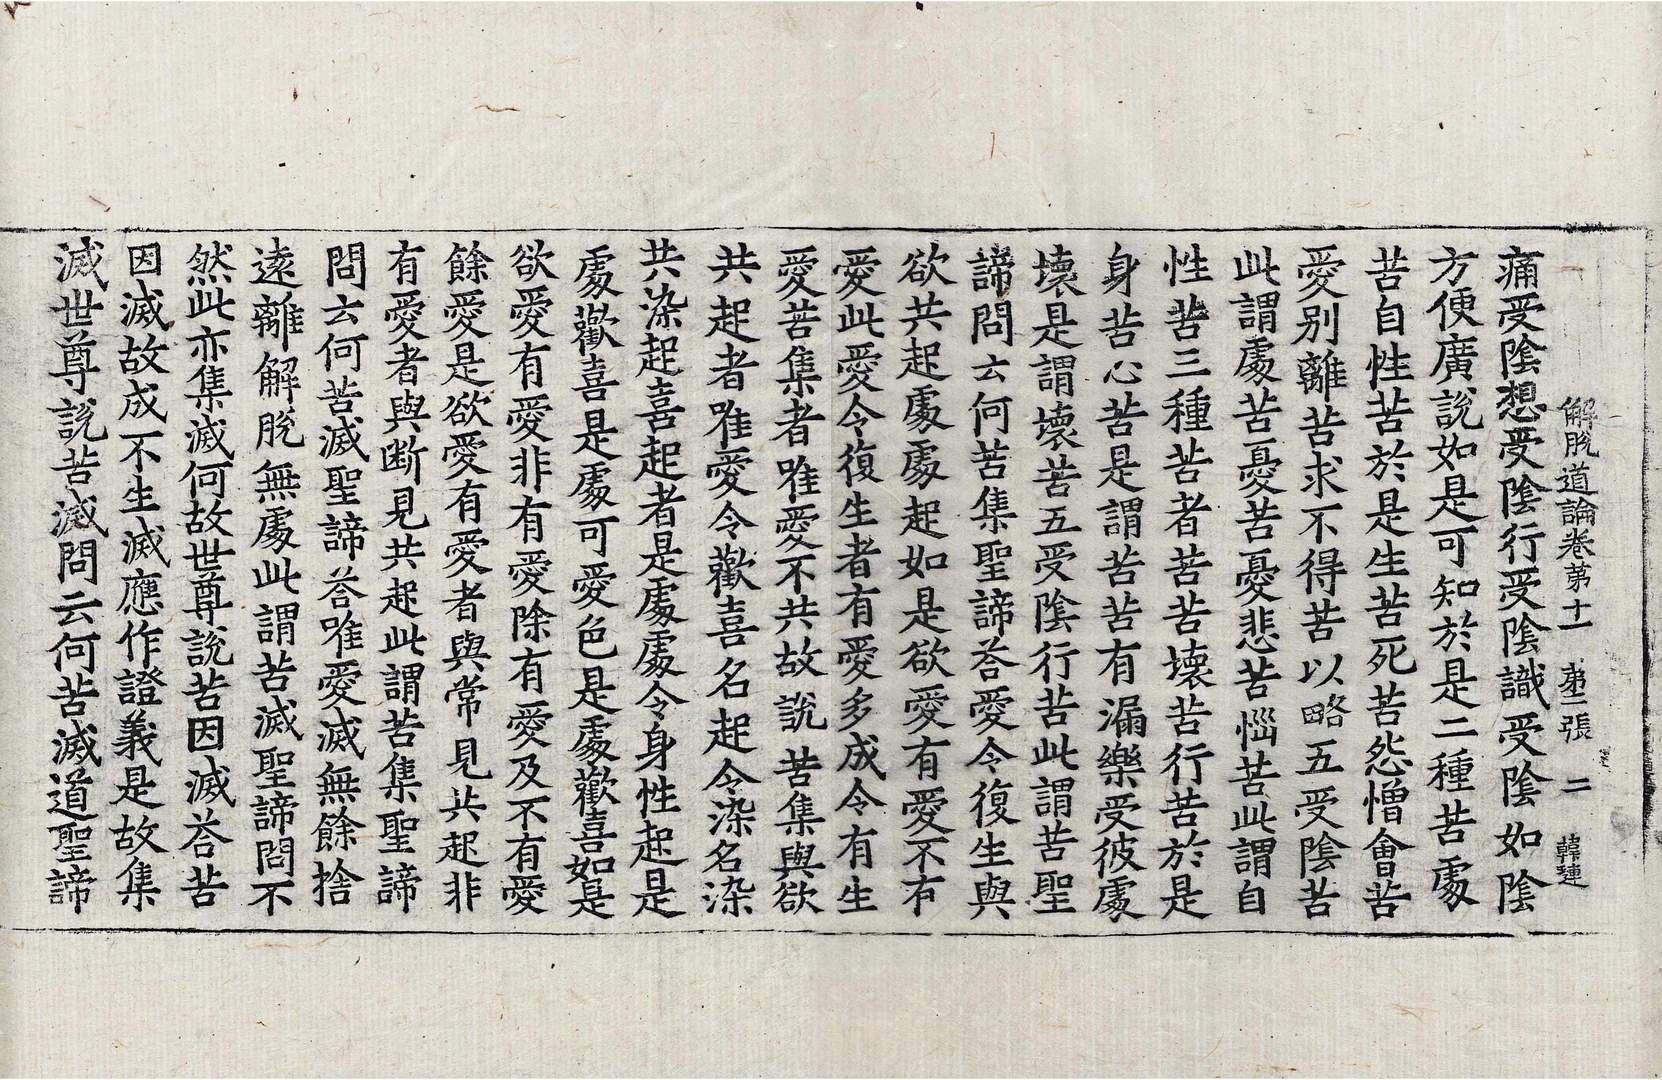 解脫道論卷第十一 第二張 二 韓璉
痛受陰想受陰行受陰識受陰如陰
方便廣說如是可知於是二種苦處
苦自性苦於是生苦死苦怨憎會苦
愛別離苦求不得苦以略五受陰苦
此謂處苦憂苦憂悲苦惱苦此謂自
性苦三種苦者苦苦壞苦行苦於是
身苦心苦是謂苦苦有漏樂受彼處
壞是謂壞苦五受陰行苦此謂苦聖
諦問云何苦集聖諦荅愛令復生與
欲共起處處起如是欲愛有愛不有
愛此愛令復生者有愛多成令有生
愛苦集者唯愛不共故說苦集與欲
共起者唯愛令歡喜名起令染名染
共染起喜起者是處處令身性起是
處歡喜是處可愛色是處歡喜如是
欲愛有愛非有愛除有愛及不有愛
餘愛是欲愛有愛者與常見共起非
有愛者與断見共起此謂苦集聖諦
問云何苦滅聖諦荅唯愛滅無餘捨
遠離解脫無處此謂苦滅聖諦問不
然此亦集滅何故世尊說苦因滅荅苦
因滅故成不生滅應作證義是故集
滅世尊說苦滅問云何苦滅道聖諦